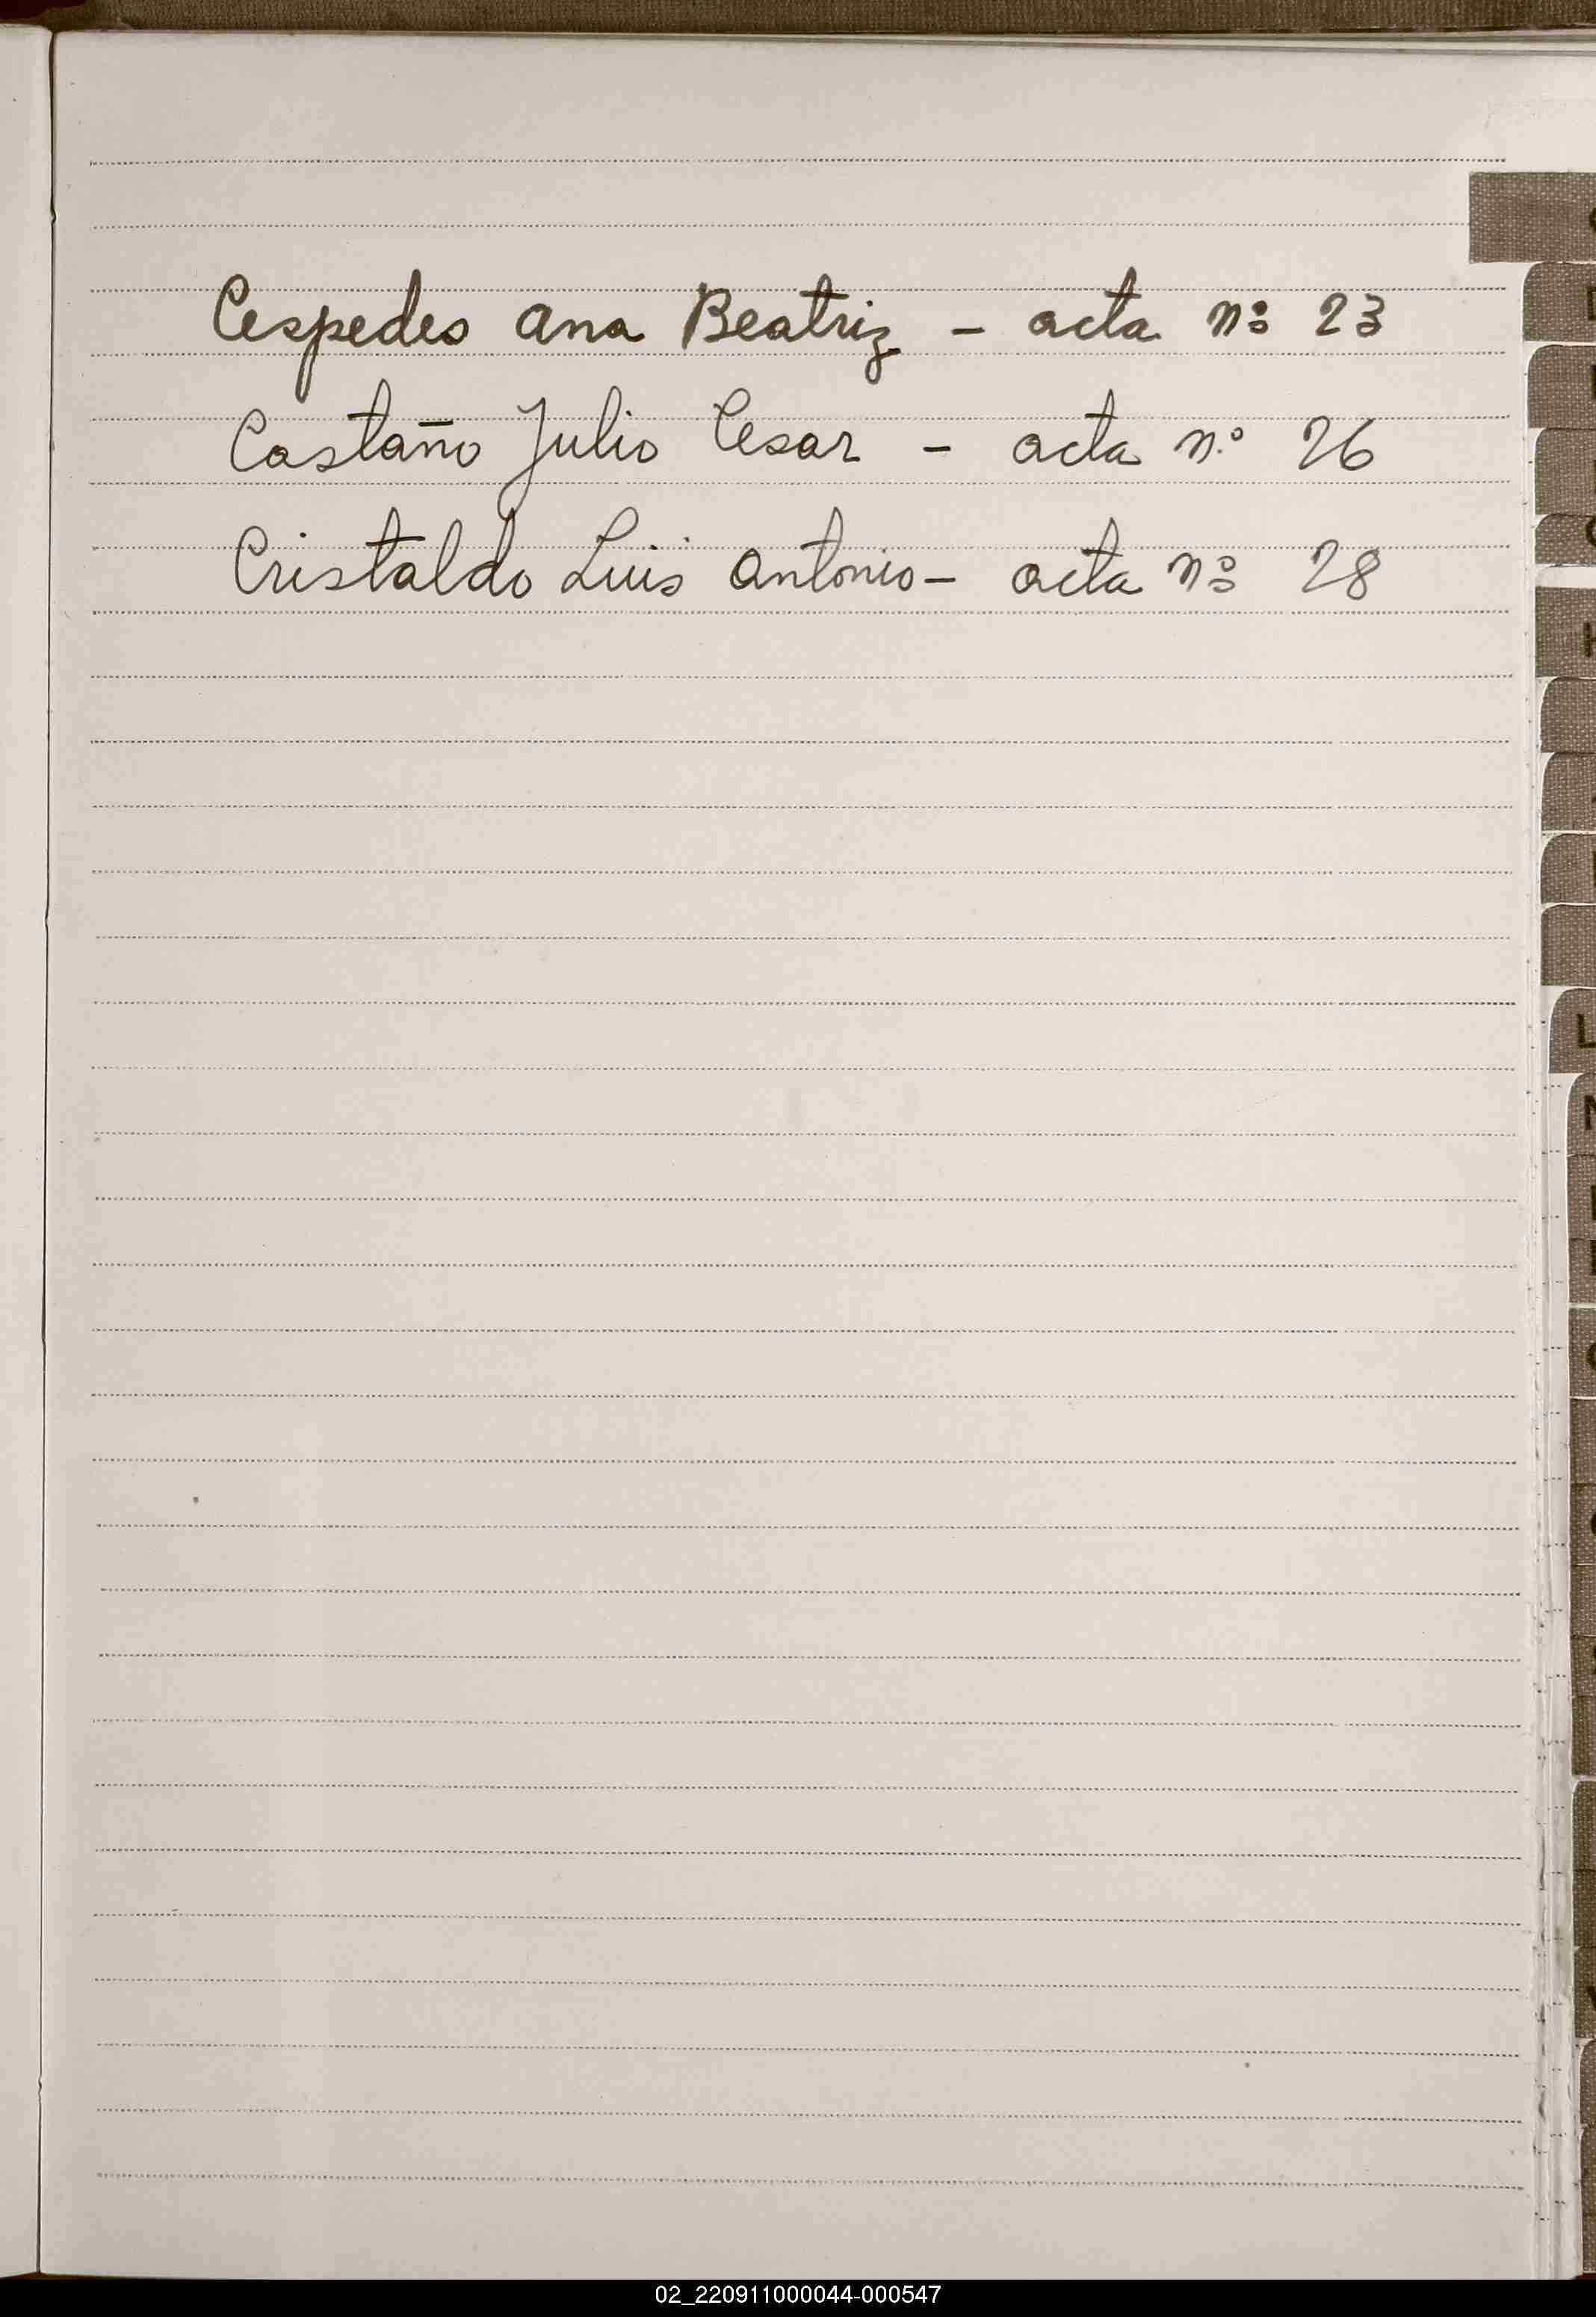 Cespedes Ana Beatriz - acta nº 23
Castaño Julio Cesar - acta n.º 26
Cristaldo Luis Antonio - acta nº 28
L
02_220911000044-000547